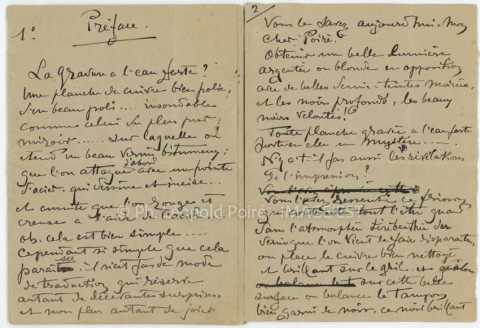 1°
Préface.
La Gravure à l'eau forte ?
Une planche de cuivre bien polie,
d'un beau poli.... insondable
comme celui du plus pur
miroir..... sur laquelle on
étend un beau vernis bitumeux;
que l'on attaque avec une pointe
d'acier, qui dessine et incise...
et ensuite que l'on ronge et
creuse à l'aide de l'acide
ob. cela est bien simple.....
Cependant si simple que cela
paraisse il n'est pas de mode
de traduction qui réserve
autant de décevantes surprises
et non plus autant de joies
2
Vous le savez aujourd'hui, mon
cher Poiré
Obtenir une belle lumière
argentée ou blonde en opposition
avec de belles demi-teintes
et les noirs profonds, les beaux
noirs veloutés !
Toute planche gravée à l'eau forte
porte en elle un mystère.....
N'y a-t-il pas aussi les révélations
de l'impression ?
Vous l'avez ressentie ce
quand
dans l'atmosphère
vernis que l'on vient de faire disparaître,
on place le cuivre bien nettoyé
et brillant sur le gril, et
sur cette belle
surface on balance le tampon
bien garni de noir, ce noir brillant